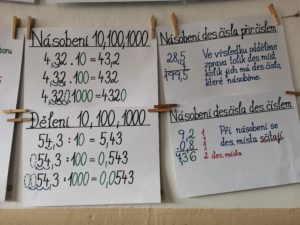 Násobení 10,100,1000
4,32 . 10 = 43,2
4,32 . 100 = 432
4,320 . 1000 = 4320
Dělení 10, 100, 1000
54,3 : 10 = 5,43
054,3 : 100 = 0,543
0054,3 : 1000 = 0,0543
Násobení des. čísla přir. číslem
28,5
199,5
Ve výsledku oddělíme
zprava tolik des. míst
kolik jich má des. čísla,
které násobíme.
Násobení des. čísla des. číslem
9,2 1
0,8 1
7,36 2 des. místa
Při násobení se
des. místa sčítají.